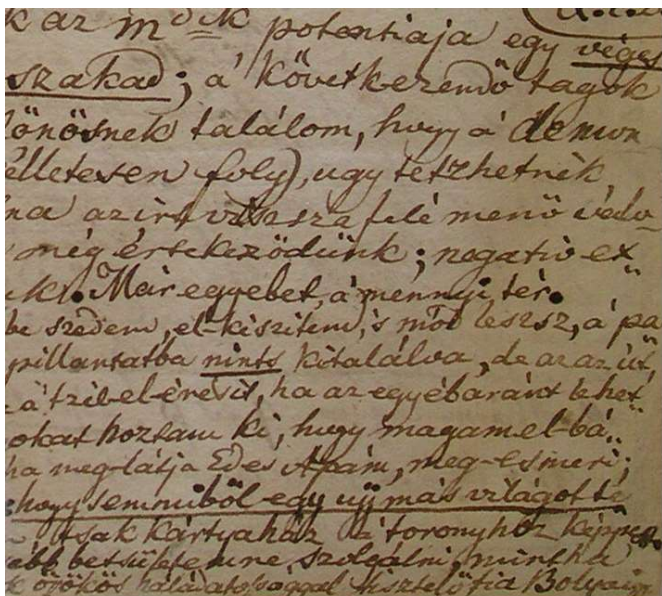 k az m dik potentiaja egy véges
szakad; á következendö tagok
lönösnek találom, hogy á demon
élletesen foly), ugy tetzhetnék
na azért visszafelé menö
még értekezödünk; negativ ex
uk. Már egyebet, á mennyi tér.
be szedem, el-kiszitem, 's mód leszsz, á pa
pillantatba nints kitalálva, de az az út,
á tzél-el-érésit, ha az egyébaránt lehet
okat hoztam ki, hogy magam el-bá
ha meg-látja Édes Apám, meg-esmeri;
hogy semmiböl egy ujj más világot te
tsak kártyaház á toronyhoz képpest
ább betsületemre, szolgálni, mintha
örökös háládatossággal tisztelö fia Bolyai